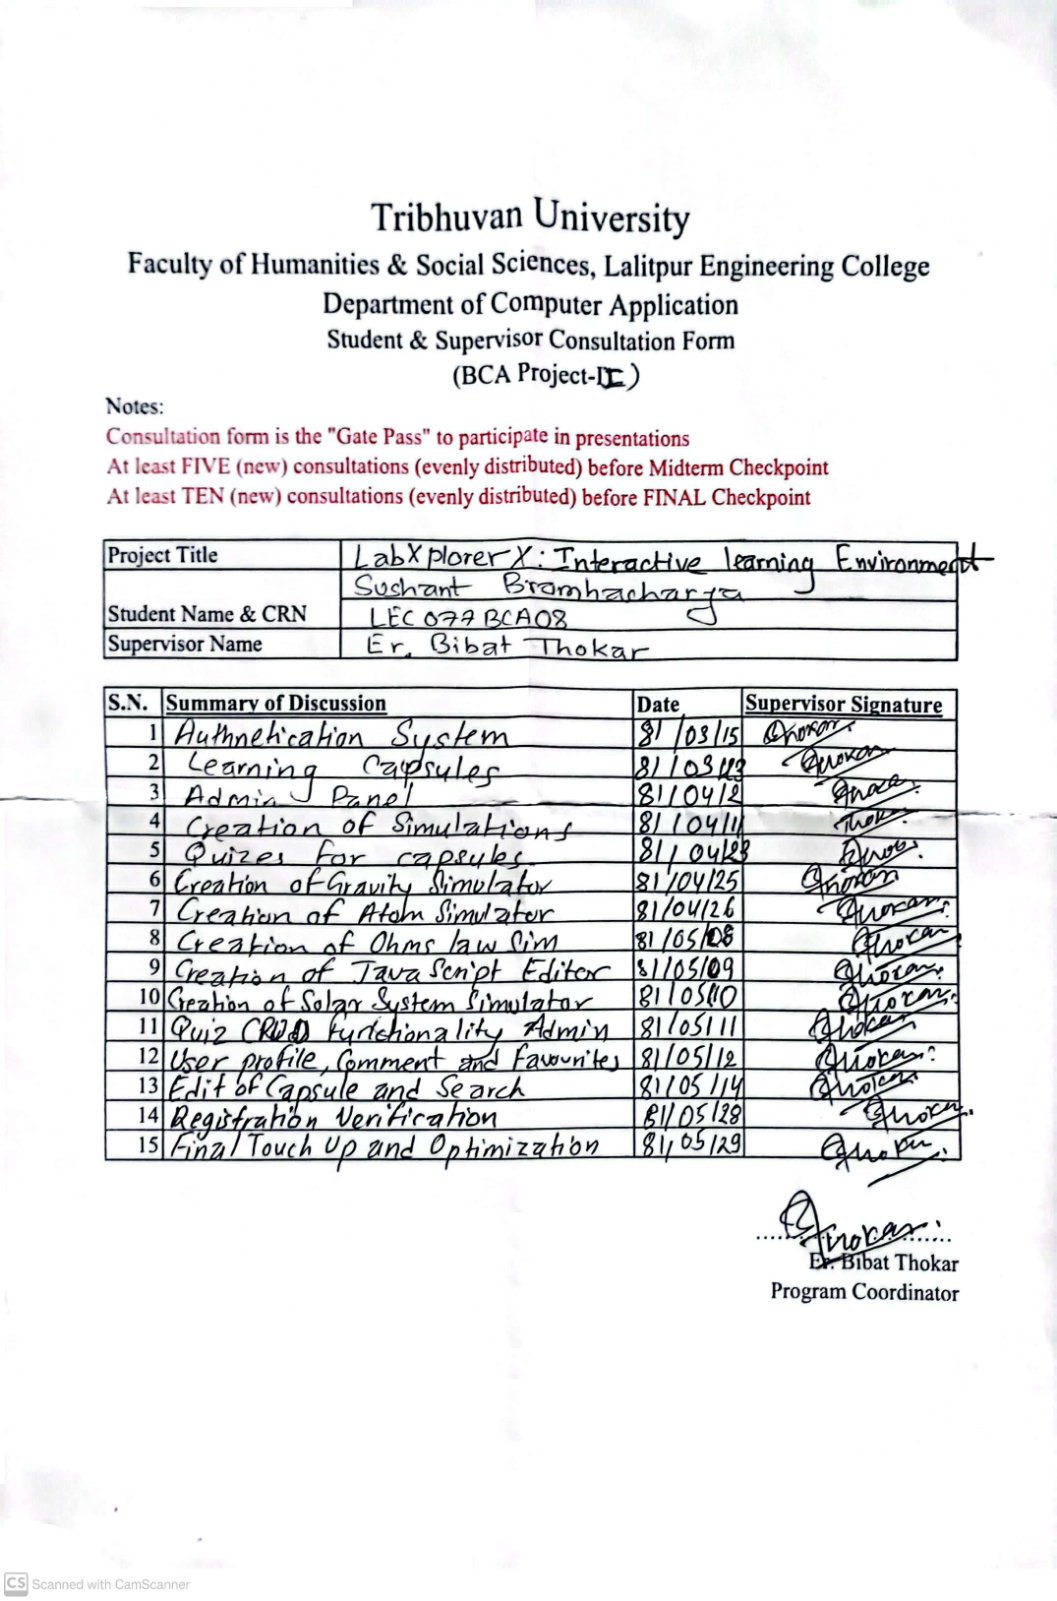 Tribhuvan University
Faculty of Humanities & Social Sciences, Lalitpur Engineering College
Department of Computer Application
Student & Supervisor Consultation Form
(BCA Project-II)
Notes:
Consultation form is the "Gate Pass" to participate in presentations
At least FIVE (new) consultations (evenly distributed) before Midterm Checkpoint
At least TEN (new) consultations (evenly distributed) before FINAL Checkpoint
Project Title LabXplorerX: Interactive learning Environment
Sushant Bramhacharya
Student Name & CRN LEC077BCA08
Supervisor Name Er. Bibat Thokar
S.N. Summary of Discussion Date Supervisor Signature
1 Authnetication System 81/03/15 Thokar
2 Learning Capsules Thokar
3 Admin Panel 81/04/2
4 Creation of Simulations 81/04/11 Thokar
5 Quizes for capsules.
6 Creation of Gravity Simulator 81/04/25 Thokar
7 Creation of Atom Simulator 81/04/26 Thokar
8 Creation of Ohms law Sim 81/05/08 Thokar
9 Creation of Java Script Editor 81/05/09 Thokar
10 Creation of Solar System Simulator 81/05/10 Thokar
11 Quiz CRUD Functionality Admin 81/05/11 Thokar
12 User profile, Comment and Favourites 81/05/12 Thokar
13 Edit of Capsule and Search 81/05/14 Thokar
14 Registration Verification 81/05/28 Thokar
15 Final Touch Up and Optimization 81/05/29 Thokar
Thokar
Er. Bibat Thokar
Program Coordinator
CS Scanned with CamScanner